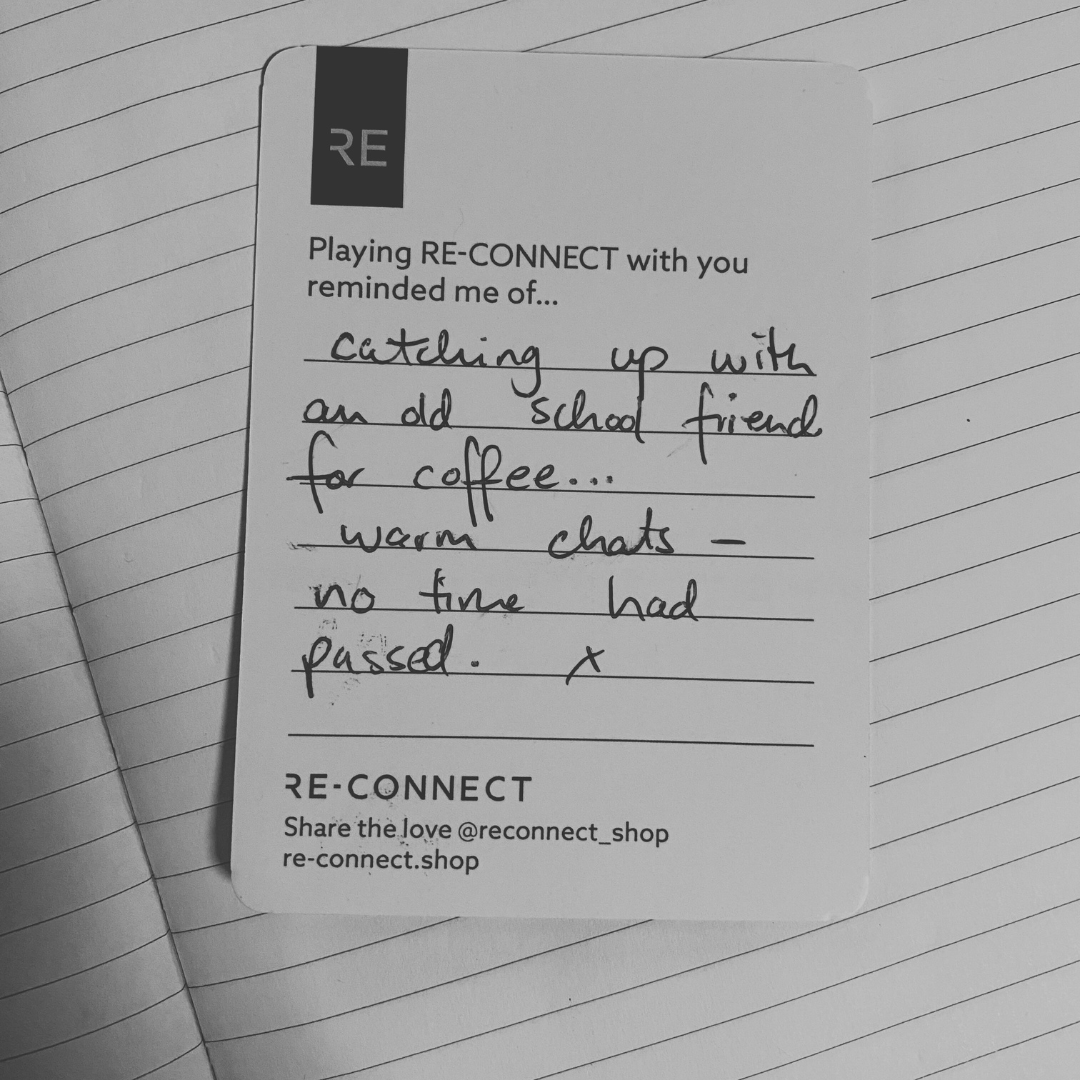 RE
Playing RE-CONNECT with you
reminded me of...
catching up with
an old school friend
for coffee...
warm chats –
no time had
passed. x
RE-CONNECT
Share the love @reconnect_shop
re-connect.shop